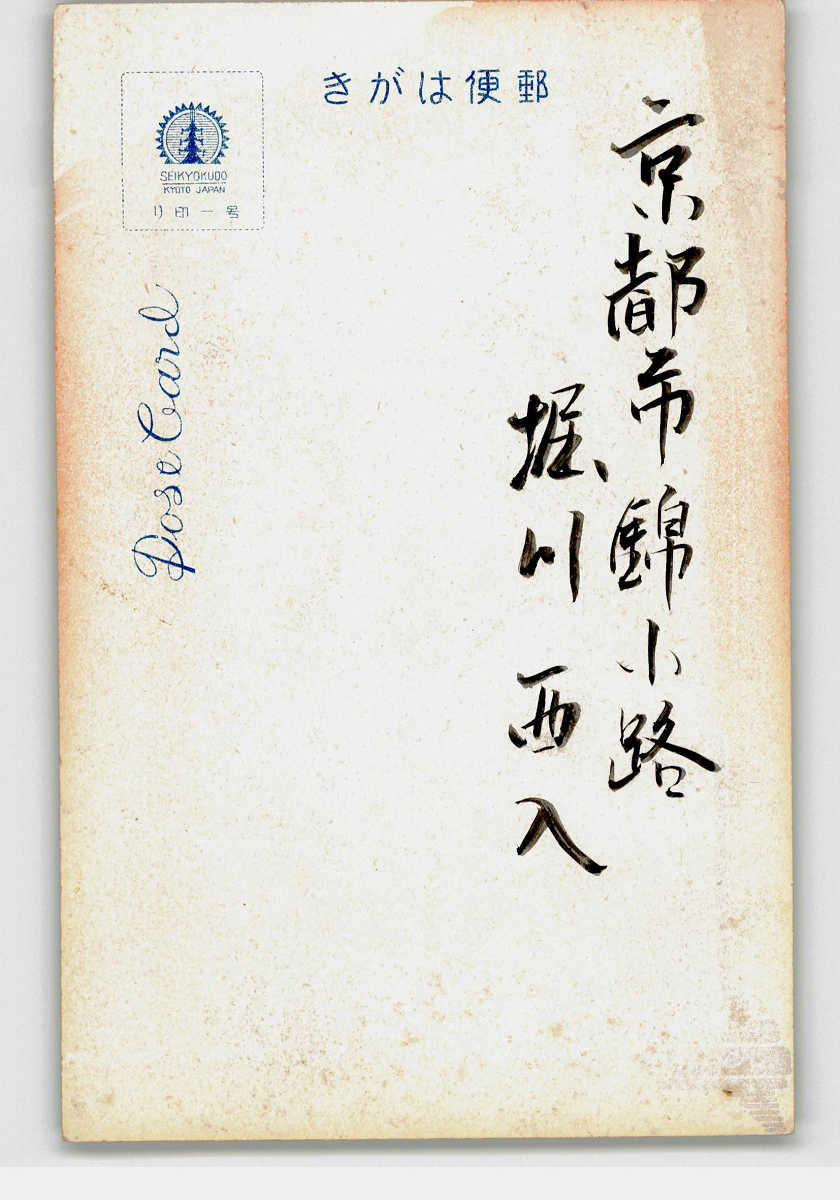 きがは便郵
SEIKYOKUDO
KYOTO JAPAN
リ印一号
京都市錦小路
堀川西入
Pose Card